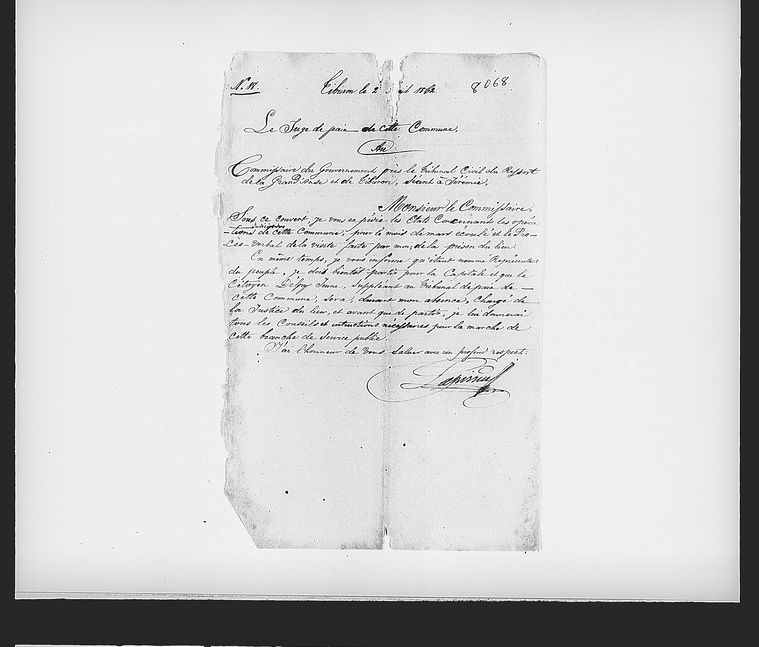 N.º 18. Tiburon le 2 1862. 8068
Le Juge de paix de cette Commune,
Au
Commissaire du Gouvernement près le tribunal Civil du Ressort
de la Grand'anse et de Tiburon, séant à Jérémie.
Monsieur le Commissaire,
Sous ce couvert, je vous expédie les Etats Concernants les opéra-
tions de cette Commune, pour le mois de mars écoulé et le Pro-
Cès-verbal de la visite faite par moi, de la prison du lieu.
En même temps, je vous informe qu'étant nommé Représentant
du peuple, je dois bientôt partir pour la Capitale et que le
Citoyen Jeune, Suppléant au tribunal de paix de
cette Commune, Sera, durant mon absence, Chargé de
la Justice du lieu, et avant que de partir, je lui donnerai
tous les Conseils et intructions nécessaires pour la marche de
cette branche de service public.
J'ai l'honneur de vous saluer avec un profond respect.